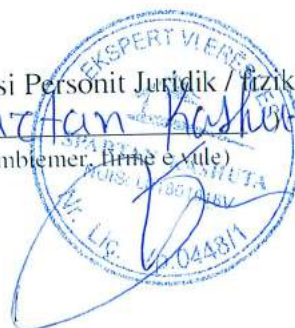 si Personit Juridik / fizik
Spartan Kashuta
mbiemer, firme e vule)
EKSPERT VLERESUES
SPARTAN KASHUTA
NUIS:
Nr. Liç.
0448/1